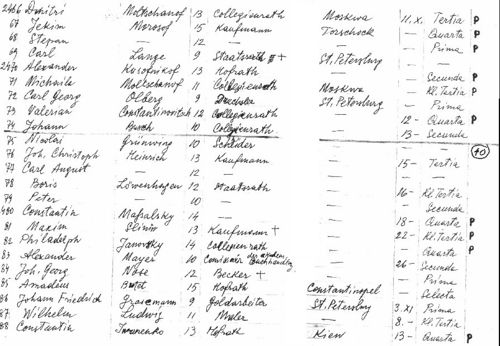 2466 Dmitri Moltschanof 13 Collegienrath Moskwa 11. X. Tertia P
67 Jekim Morosof 15 Kaufmann Torschock — Quarta P
68 Stepan — 12 — — — Prima P
69 Carl Lange 9 Staatsrath + St. Petersburg
2470 Alexander Kusofnikof 13 Hofrath — — Secunda P
71 Michaila Moltschanof 11 Collegienrath Moskwa — Kl. Tertia P
72 Carl Georg Olberg 9 Drechsler St. Petersburg — Prima
73 Valerian Constantinowitsch 12 Collegienrath — 12 - Quarta P
74 Johann Busch 10 Collegienrath — 13 - Secunda
75 Nicolai Grünning 10 Schneider
76 Joh. Christoph Heinrich 13 Kaufmann — 15 - Tertia
77 Carl August — 12 —
78 Boris Löwenhagen 12 Staatsrath — 16 - Kl. Tertia
79 Peter — 10 — — Secunda
480 Constantin 14 — 18 - Quarta P
81 Maxim 13 Kaufmann + — 22 - Kl. Tertia P
82 Philadelph Janovsky 14 Collegienrath — Quarta P
83 Alexander Mayer 10 der Buchhandlung — 26 - Secunda
84 Joh. Georg Nose 12 Becker + — Prima
85 Amadeus 15 Hofrath Constantinopel — Selecta
86 Johann Friedrich 9 Goldarbeiter St. Petersburg 3. XI Prima P
87 Wilhelm Ludwig 11 Maler — 8. - Kl. Tertia
88 Constantin Iwanenko 13 Hofrath Kiew 13 - Quarta P